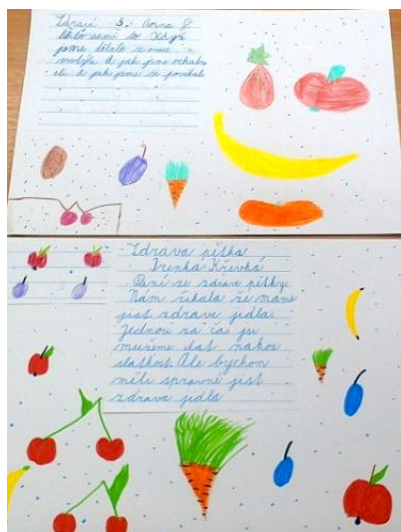 Zdravá 5.
líbilo semi to když
jsme dělali z ovoce
motýla. A jak jsme
a jak jsme si povídali
Zdravá pětka
Irenka
Paní ze zdravé pětky
Nám říkala že máme
jíst zdravé jídla.
Jednou za čas si
mužeme dát nákou
sladkost. Ale bychom
měli spravně jíst
zdravá jídla